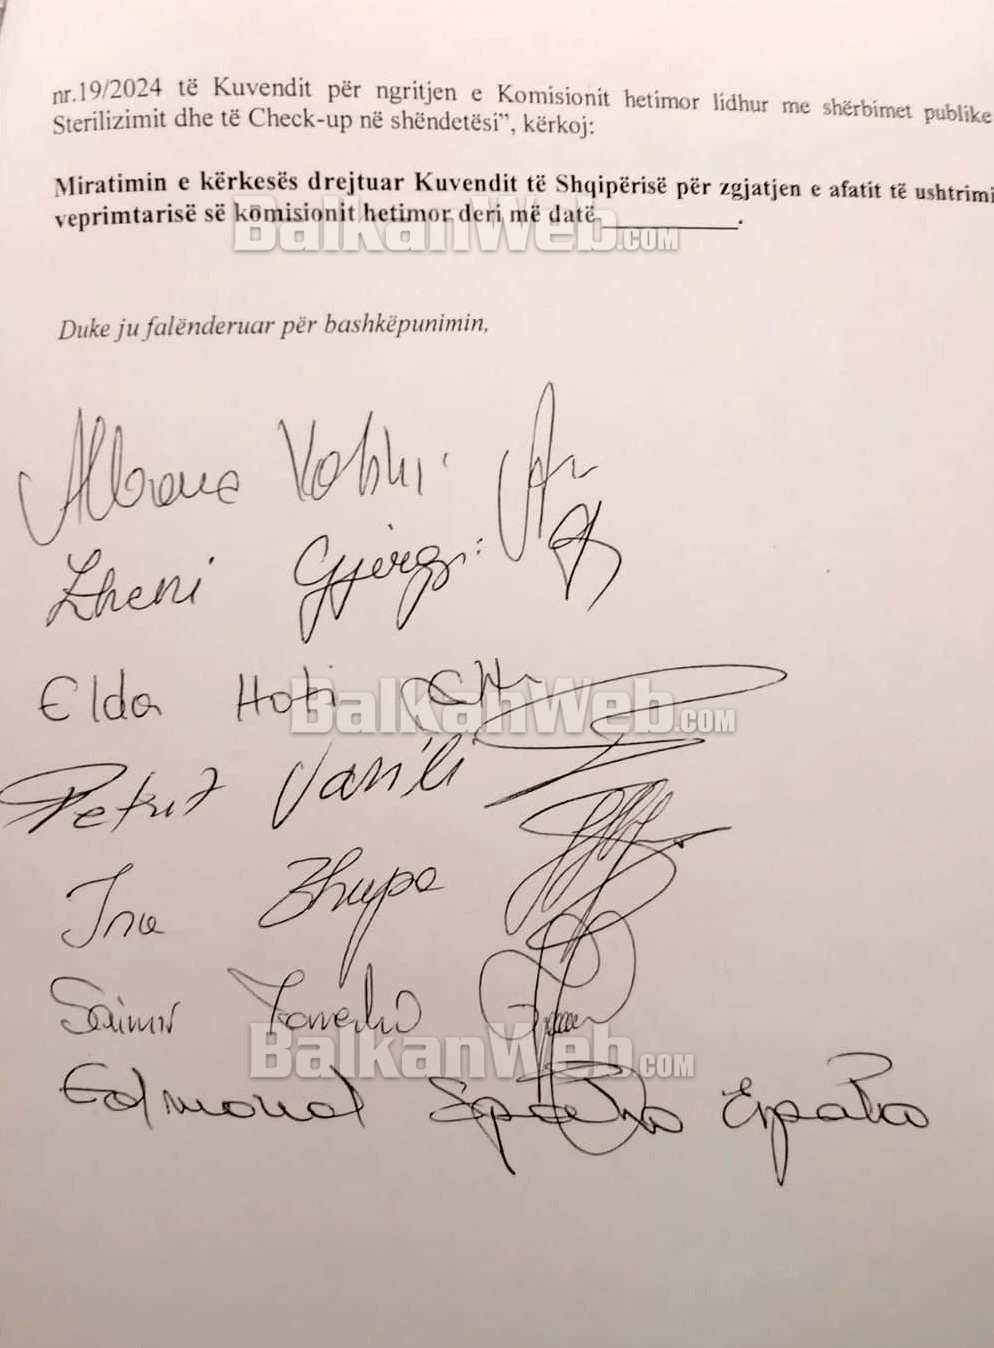 nr.19/2024 të Kuvendit për ngritjen e Komisionit hetimor lidhur me shërbimet publike
Sterilizimit dhe të Check-up në shëndetësi”, kërkoj:
Miratimin e kërkesës drejtuar Kuvendit të Shqipërisë për zgjatjen e afatit të ushtrimi
veprimtarisë së komisionit hetimor deri më datë ___________.
BalkanWeb.COM
Duke ju falënderuar për bashkëpunimin,
Albana Vokshi
Zheni Gjergji
Elda Hoti EHoti
BalkanWeb.COM
Petrit Vasili
Ina Zhupa
Saimir
BalkanWeb.COM
Edmond Spaho